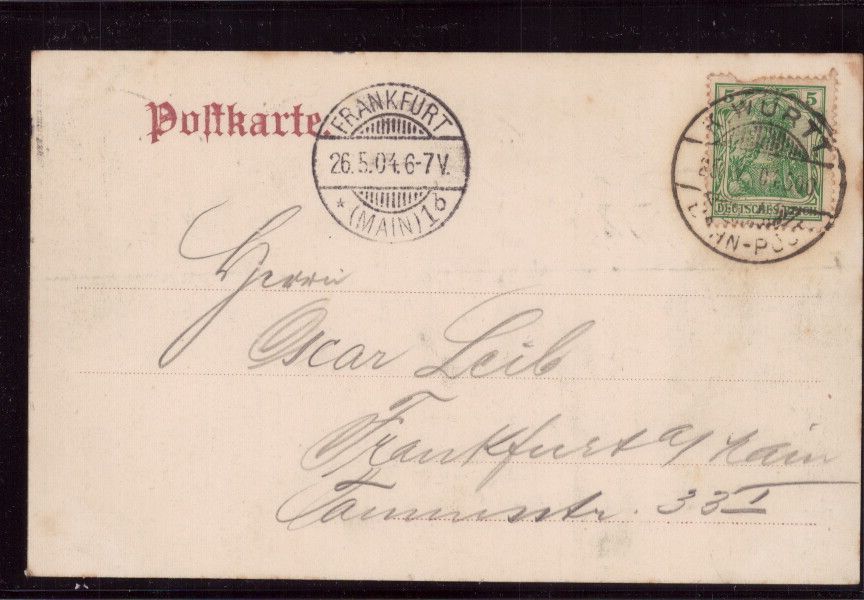 Postkarte.
FRANKFURT
26.5.04.6-7V.
* (MAIN) 1b
5
WÜRTT
DEUTSCHES REICH
BAHN-POST
Herrn
Oscar Leib
Frankfurt a/Main
Taunusstr. 33 I